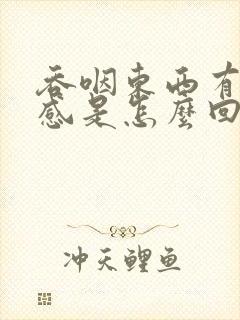 吞咽东西有
感是怎麼回
冲天鲤鱼